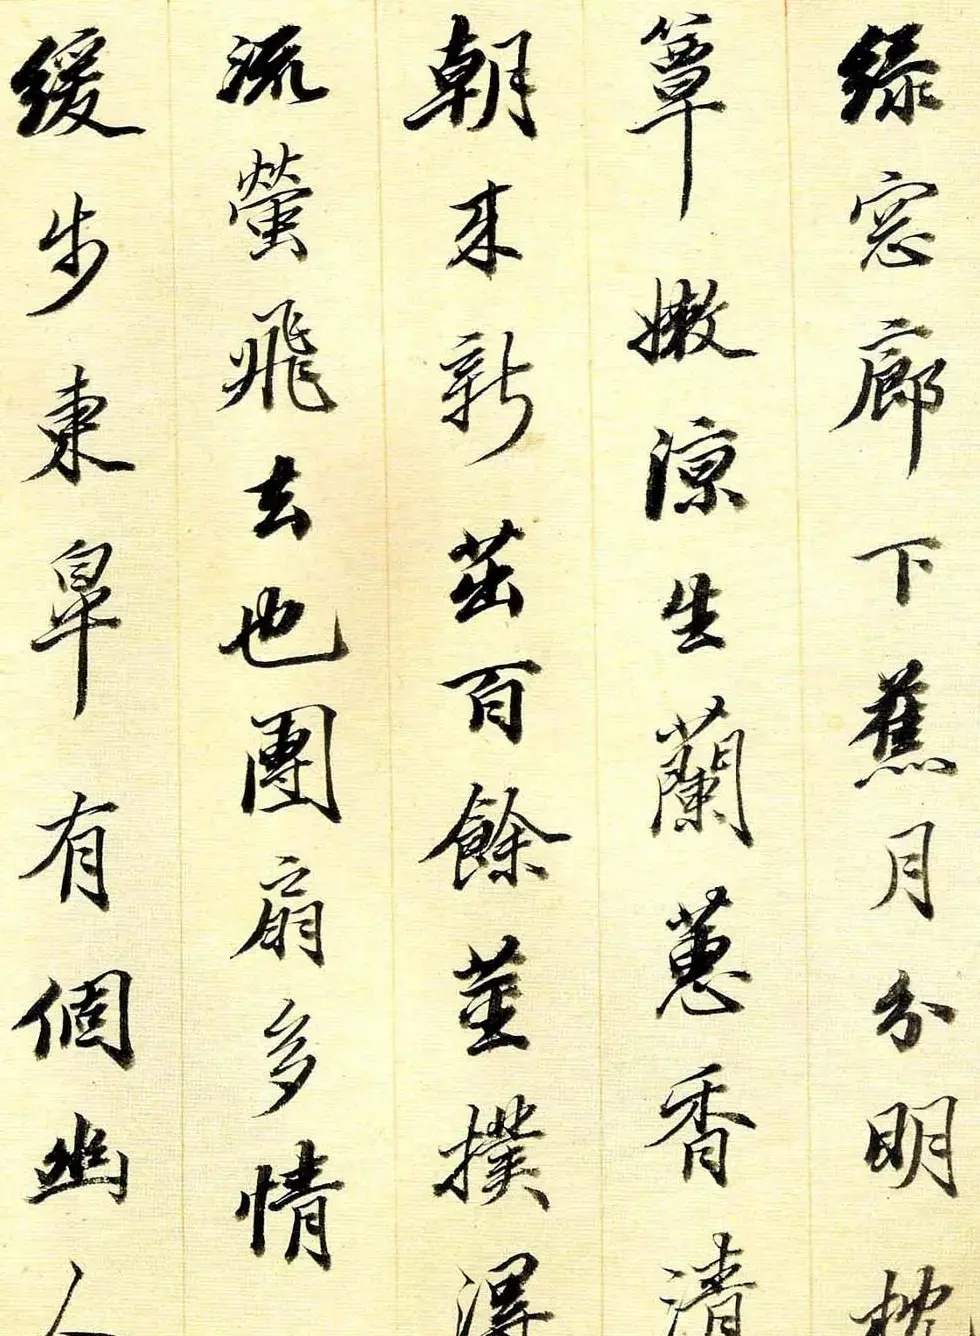 綠窓廊下蕉月分明枕
簟嫩涼生蘭蕙香清
朝来新茁百餘莖撲得
流螢飛去也團扇多情
緩步東皋有個幽人